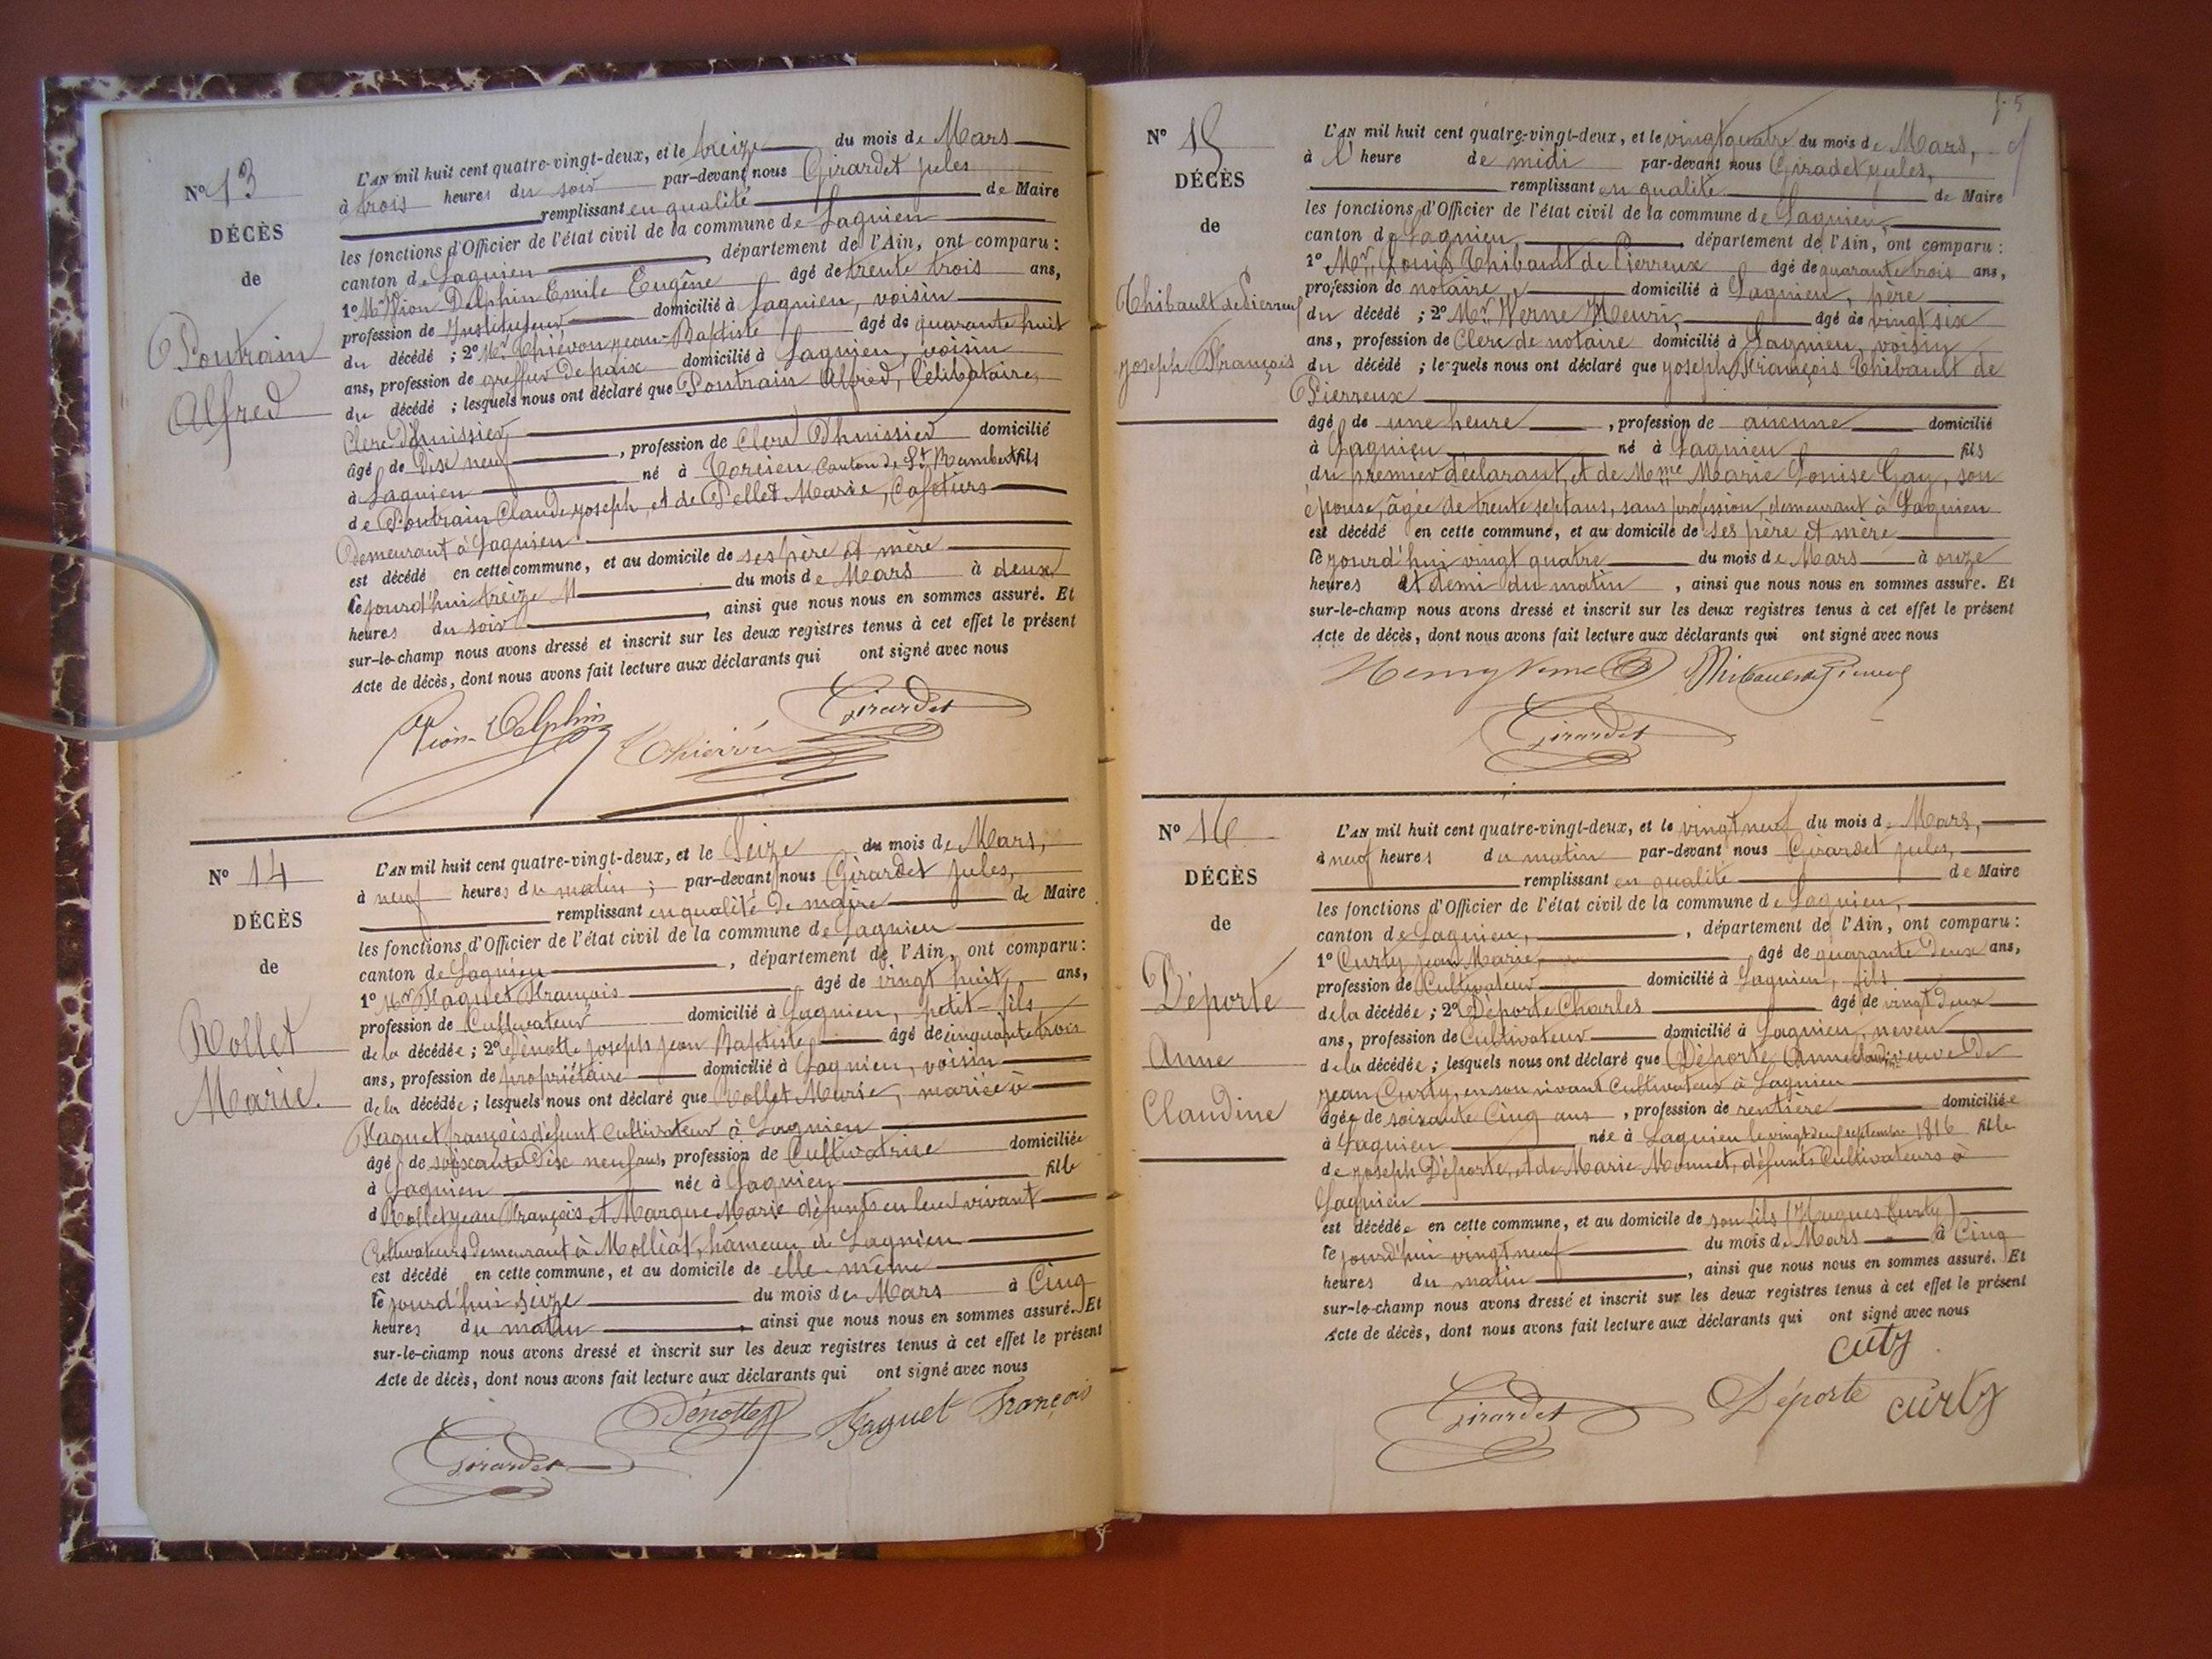 N° 13
DÉCÈS
de
Pontrain
Alfred
L'AN mil huit cent quatre-vingt-deux, et le treize du mois de Mars
à trois heures du soir par-devant nous Girardet Jules
remplissant en qualité de Maire
les fonctions d'Officier de l'état civil de la commune de Lagnieu
canton de Lagnieu, département de l'Ain, ont comparu :
1° Mr Vion Delphin Emile Eugène âgé de trente trois ans,
profession de Instituteur domicilié à Lagnieu, voisin
du décédé ; 2° Mr Thiévon Jean-Baptiste âgé de quarante huit
ans, profession de greffier de paix domicilié à Lagnieu, voisin
du décédé ; lesquels nous ont déclaré que Pontrain Alfred, Célibataire,
Clerc d'huissier
âgé de Dix neuf, profession de Clerc d'huissier domicilié
à Lagnieu né à Torcieu Canton de St Rambert fils
de Pontrain Claude Joseph, et de Pellet Marie,
Demeurant à Lagnieu
est décédé en cette commune, et au domicile de ses père et mère
le jourd'hui treize du mois de Mars à deux
heures du soir, ainsi que nous nous en sommes assuré. Et
sur-le-champ nous avons dressé et inscrit sur les deux registres tenus à cet effet le présent
Acte de décès, dont nous avons fait lecture aux déclarants qui ont signé avec nous
Vion-Delphin Thiévon Girardet
N° 14
DÉCÈS
de
Rollet
Marie.
L'AN mil huit cent quatre-vingt-deux, et le Seize du mois de Mars,
à neuf heures du matin ; par-devant nous Girardet Jules,
remplissant en qualité de maire de Maire
les fonctions d'Officier de l'état civil de la commune de Lagnieu
canton de Lagnieu, département de l'Ain, ont comparu :
1° Mr Haquet François âgé de vingt huit ans,
profession de Cultivateur domicilié à Lagnieu, petit-fils
de la décédée ; 2° Dénotte Joseph Jean Baptiste âgé de cinquante trois
ans, profession de propriétaire domicilié à Lagnieu, voisin
de la décédée ; lesquels nous ont déclaré que Rollet Marie, mariée à
Haquet françois défunt Cultivateur à Lagnieu
âgé de soixante Dix neuf ans, profession de Cultivatrice domiciliée
à Lagnieu née à Lagnieu fille
d Rollet Jean François et Margue Marie défunts en leur vivant
Cultivateurs demeurant à Molliat, hameau de Lagnieu
est décédé en cette commune, et au domicile de elle-même
le jourd'hui seize du mois de Mars à Cinq
heures du matin, ainsi que nous nous en sommes assuré. Et
sur-le-champ nous avons dressé et inscrit sur les deux registres tenus à cet effet le présent
Acte de décès, dont nous avons fait lecture aux déclarants qui ont signé avec nous
Girardet Dénotte Haquet François
N° 15
DÉCÈS
de
Thibault de Pierreux
Joseph François
L'AN mil huit cent quatre-vingt-deux, et le vingt quatre du mois de Mars,
à l' heure de midi par-devant nous Giradet Jules,
remplissant en qualité de Maire
les fonctions d'Officier de l'état civil de la commune de Lagnieu,
canton de Lagnieu, département de l'Ain, ont comparu :
1° Mr. Louis Thibault de Pierreux âgé de quarante trois ans,
profession de notaire, domicilié à Lagnieu, père
du décédé ; 2° Mr. Verne Henri, âgé de vingt six
ans, profession de Clerc de notaire domicilié à Lagnieu, voisin
du décédé ; lesquels nous ont déclaré que Joseph François Thibault de
Pierreux
âgé de une heure, profession de aucune domicilié
à Lagnieu né à Lagnieu fils
du premier déclarant, et de Mme Marie Louise Gay, son
épouse, âgée de trente sept ans, sans profession, demeurant à Lagnieu
est décédé en cette commune, et au domicile de ses père et mère
le jourd'hui vingt quatre du mois de Mars à onze
heures et demi du matin, ainsi que nous nous en sommes assuré. Et
sur-le-champ nous avons dressé et inscrit sur les deux registres tenus à cet effet le présent
Acte de décès, dont nous avons fait lecture aux déclarants qui ont signé avec nous
Henry Verne Thibault de Pierreux
Girardet
N° 16
DÉCÈS
de
Déporte
Anne
Claudine
L'AN mil huit cent quatre-vingt-deux, et le vingt neuf du mois de Mars,
à neuf heures du matin par-devant nous Girardet Jules,
remplissant en qualité de Maire
les fonctions d'Officier de l'état civil de la commune de Lagnieu,
canton de Lagnieu, département de l'Ain, ont comparu :
1° Curty Jean Marie, âgé de quarante Deux ans,
profession de Cultivateur domicilié à Lagnieu, fils
de la décédée ; 2° Déporte Charles âgé de vingt deux
ans, profession de Cultivateur domicilié à Lagnieu, neveu
de la décédée ; lesquels nous ont déclaré que Déporte Anne Claudine veuve De
Jean Curty, en son vivant Cultivateur à Lagnieu
âgée de soixante Cinq ans, profession de rentière domiciliée
à Lagnieu née à Lagnieu le septembre 1816 fille
de Joseph Déporte, et de Marie Monnet, défunts Cultivateurs à
Lagnieu
est décédée en cette commune, et au domicile de son fils (Hugues Curty)
le jourd'hui vingt neuf du mois de Mars à Cinq
heures du matin, ainsi que nous nous en sommes assuré. Et
sur-le-champ nous avons dressé et inscrit sur les deux registres tenus à cet effet le présent
Acte de décès, dont nous avons fait lecture aux déclarants qui ont signé avec nous
cuty
Girardet Déporte curty